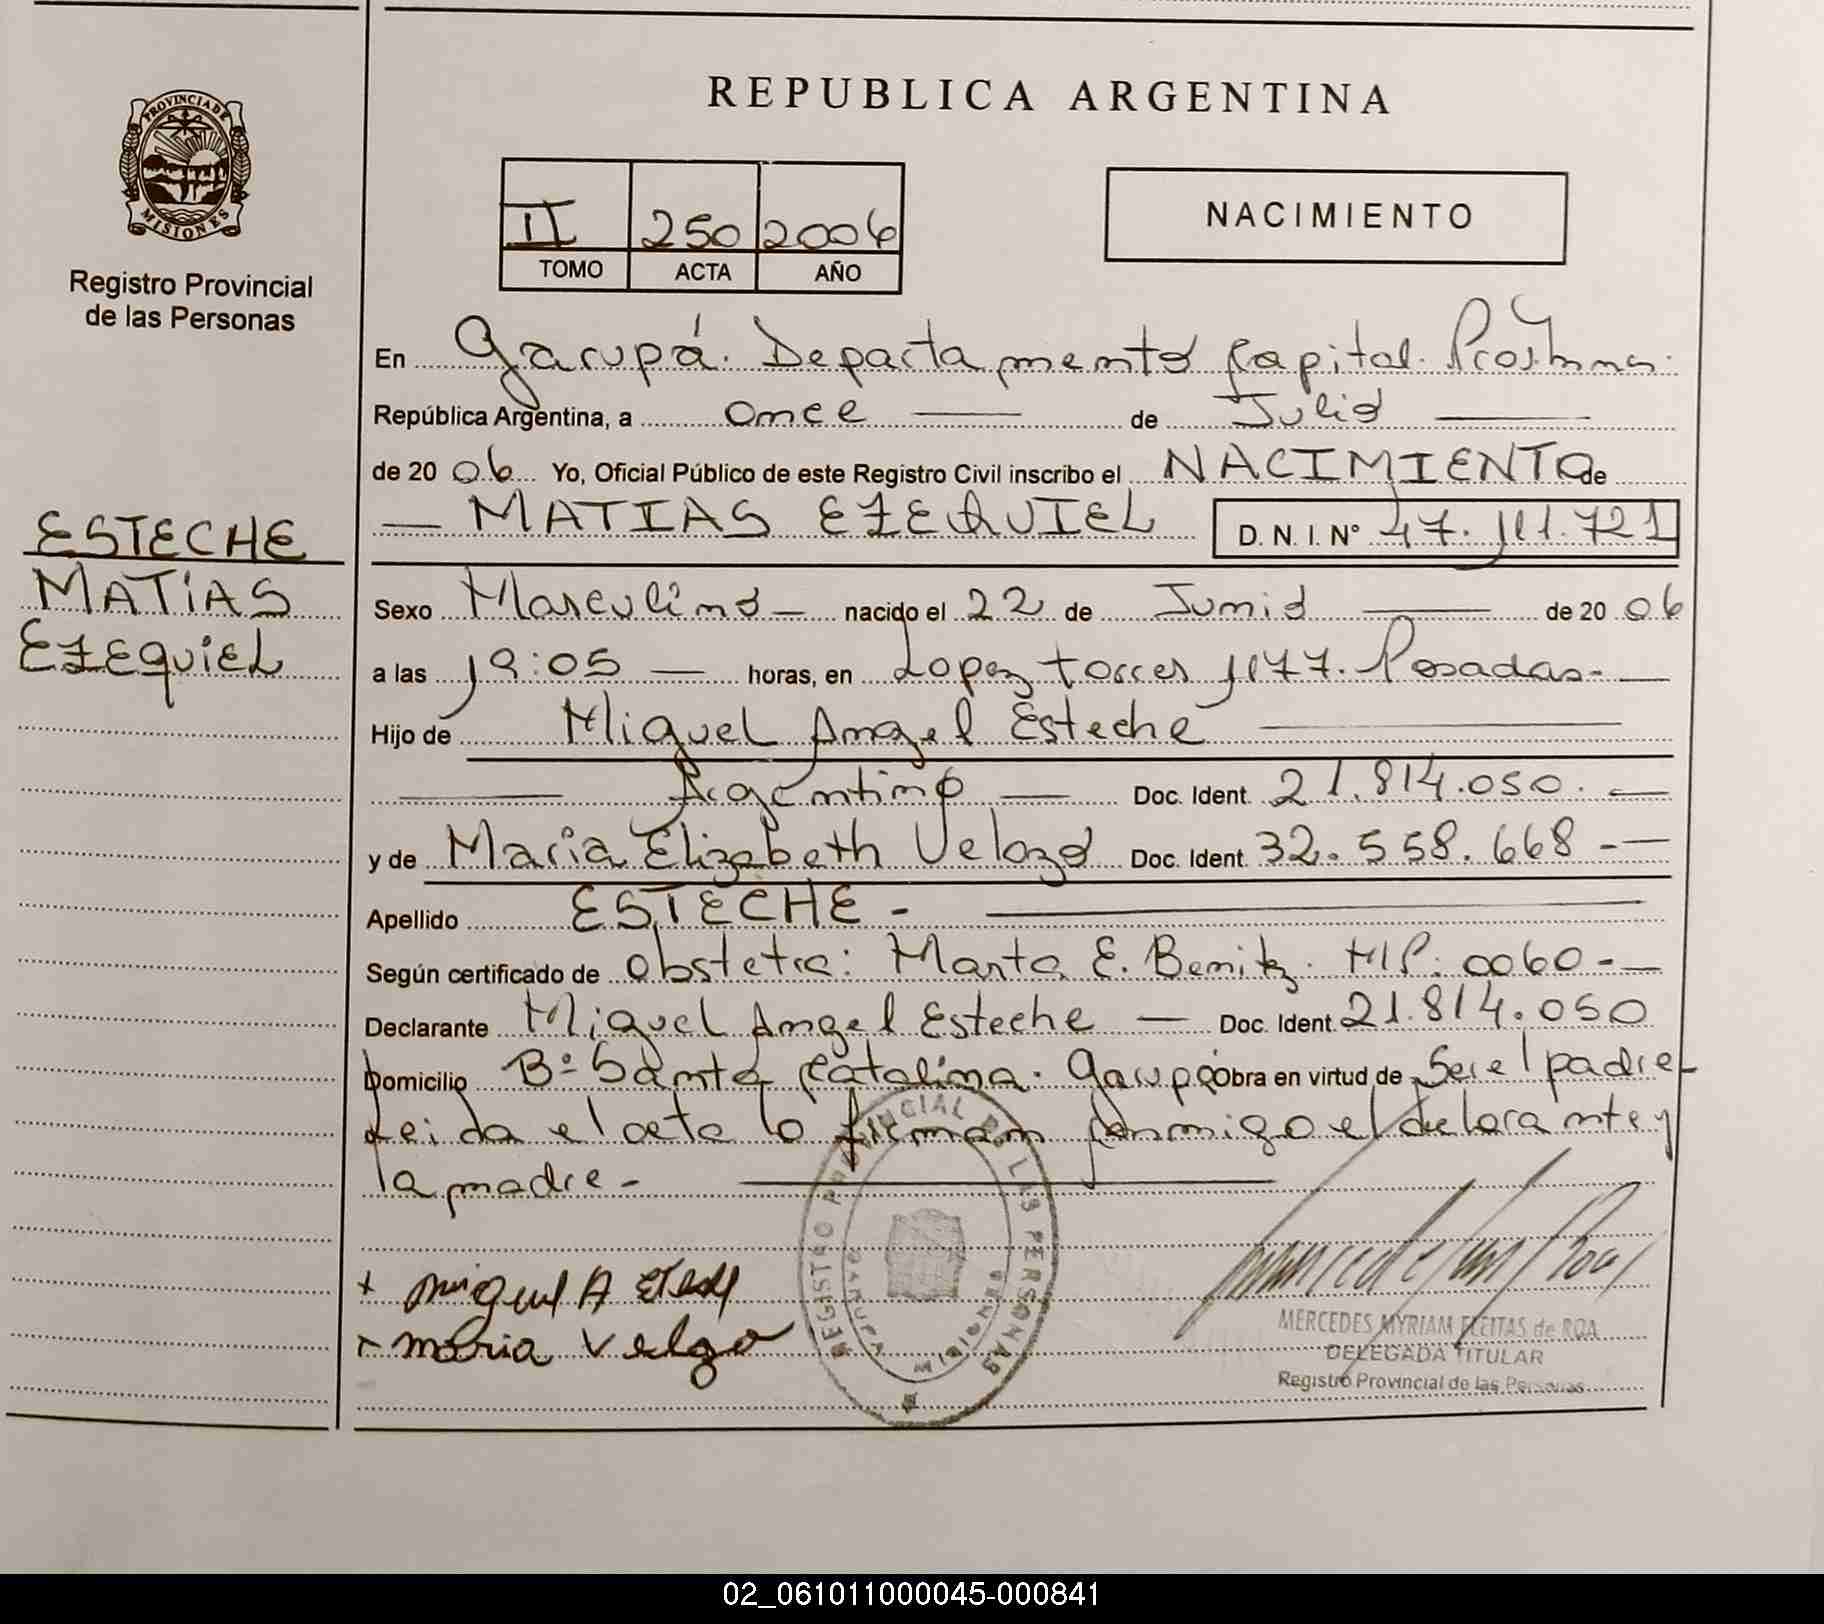 REPUBLICA ARGENTINA
PROVINCIA DE
MISIONES
Registro Provincial
de las Personas
II 250 2006
TOMO ACTA AÑO
NACIMIENTO
ESTECHE
MATIAS
EZEQUIEL
En Garupá. Departamento Capital.
República Argentina, a once de Julio
de 20 06 Yo, Oficial Público de este Registro Civil inscribo el NACIMIENTO de
MATIAS EZEQUIEL D. N. I. Nº 47.111.721
Sexo Masculino nacido el 22 de Junio de 20 06
a las 19:05 horas, en Lopez torres 1177. Posadas.
Hijo de Miguel Angel Esteche
Argentino Doc. Ident. 21.814.050.
y de Maria Elizabeth Velozo Doc. Ident. 32.558.668
Apellido ESTECHE
Según certificado de obstetra: Marta E. Benitz. M.P. 0060
Declarante Miguel Angel Esteche Doc. Ident. 21.814.050
Domicilio Bº Santa Catalina. Garupá Obra en virtud de Ser el padre
Leida el acta lo firman conmigo el declarante y
la madre
REGISTRO PROVINCIAL DE LAS PERSONAS
GARUPA
x Miguel A
x maria Velozo
MERCEDES MYRIAM FLEITAS de ROA
DELEGADA TITULAR
Registro Provincial de las Personas
02_061011000045-000841